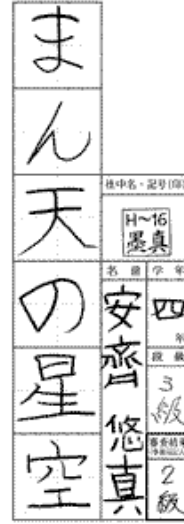 まん天の星空
社中名・記号(印)
H～16
墨真
名前
安齊悠真
学年
四
年
段級
3級
審査結果
2級